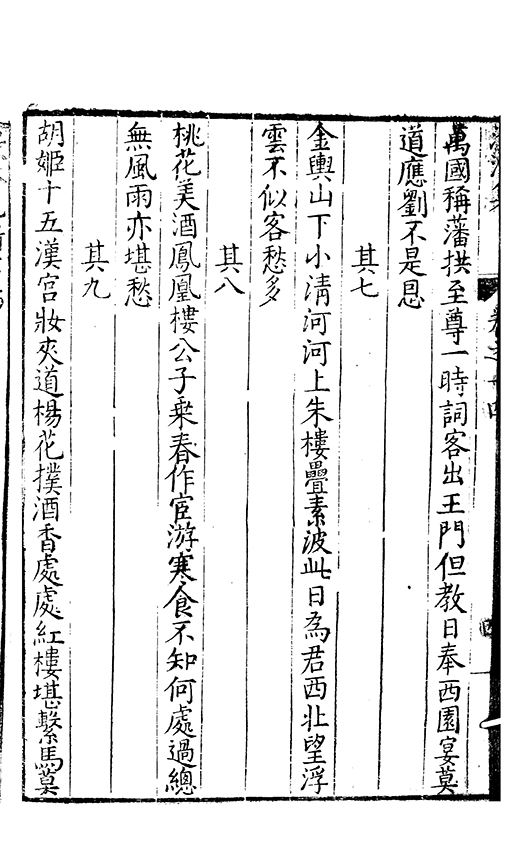 萬國稱藩拱至尊一時詞客出王門但教日奉西園宴莫
道應劉不是恩
其七
金輿山下小清河河上朱樓疊素波此日為君西北望浮
雲不似客愁多
其八
桃花美酒鳳凰樓公子乗春作宦游寒食不知何處過總
無風雨亦堪愁
其九
胡姬十五漢宫妝夾道楊花撲酒香處處紅樓堪繫馬莫